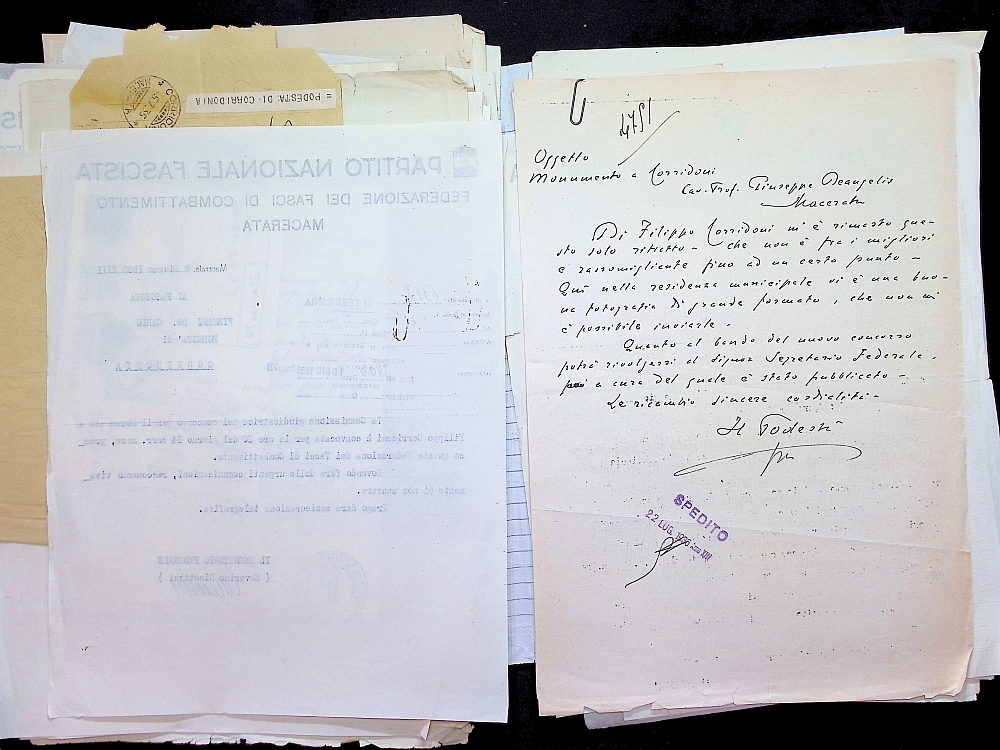 = PODESTA DI CORRIDONIA
PARTITO NAZIONALE FASCISTA
FEDERAZIONE DEI FASCI DI COMBATTIMENTO
MACERATA
AL FASCISTA
PODESTA' di
CORRIDONIA
La Commissione giudicatrice del concorso per il
Filippo Corridoni è convocata per le ore 10 del giorno 14 corr. mese, pres_
so questa Federazione dei Fasci di Combattimento.
Dovendo fare delle urgenti comunicazioni, raccomando viva_
mente di non mancare.
Prego dare assicurazione telegrafica.
IL SEGRETARIO FEDERALE
4751
Oggetto
Monumento a Corridoni
Cav. Prof. Giuseppe Deangelis
Macerata
Di Filippo Corridoni m'è rimasto que-
sto solo ritratto - che non è fra i migliori
e rassomigliante fino ad un certo punto -
Quì nella residenza municipale vi è una buo-
na fotografia di grande formato, che non mi
è possibile inviarle.
Quanto al bando del nuovo concorso
potrà rivolgersi al Signor Segretario Federale,
a cura del quale è stato pubblicato -
Le ricambio sincere cordialità -
Il Podestà
SPEDITO
22 LUG.